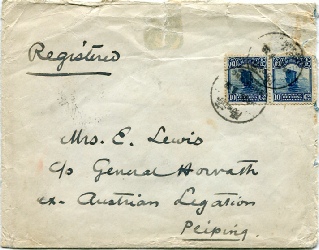 Registered
Mrs. E. Lewis
c/o General Horvath
ex- Austrian Legation
Peiping.
10 10